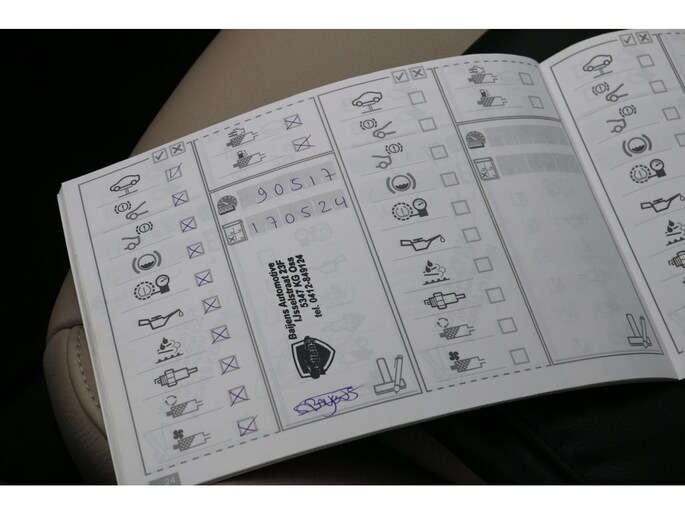 90517
170524
Baijens Automotive
IJsselstraat 23F
5347 KG Oss
tel. 0412-849124
24